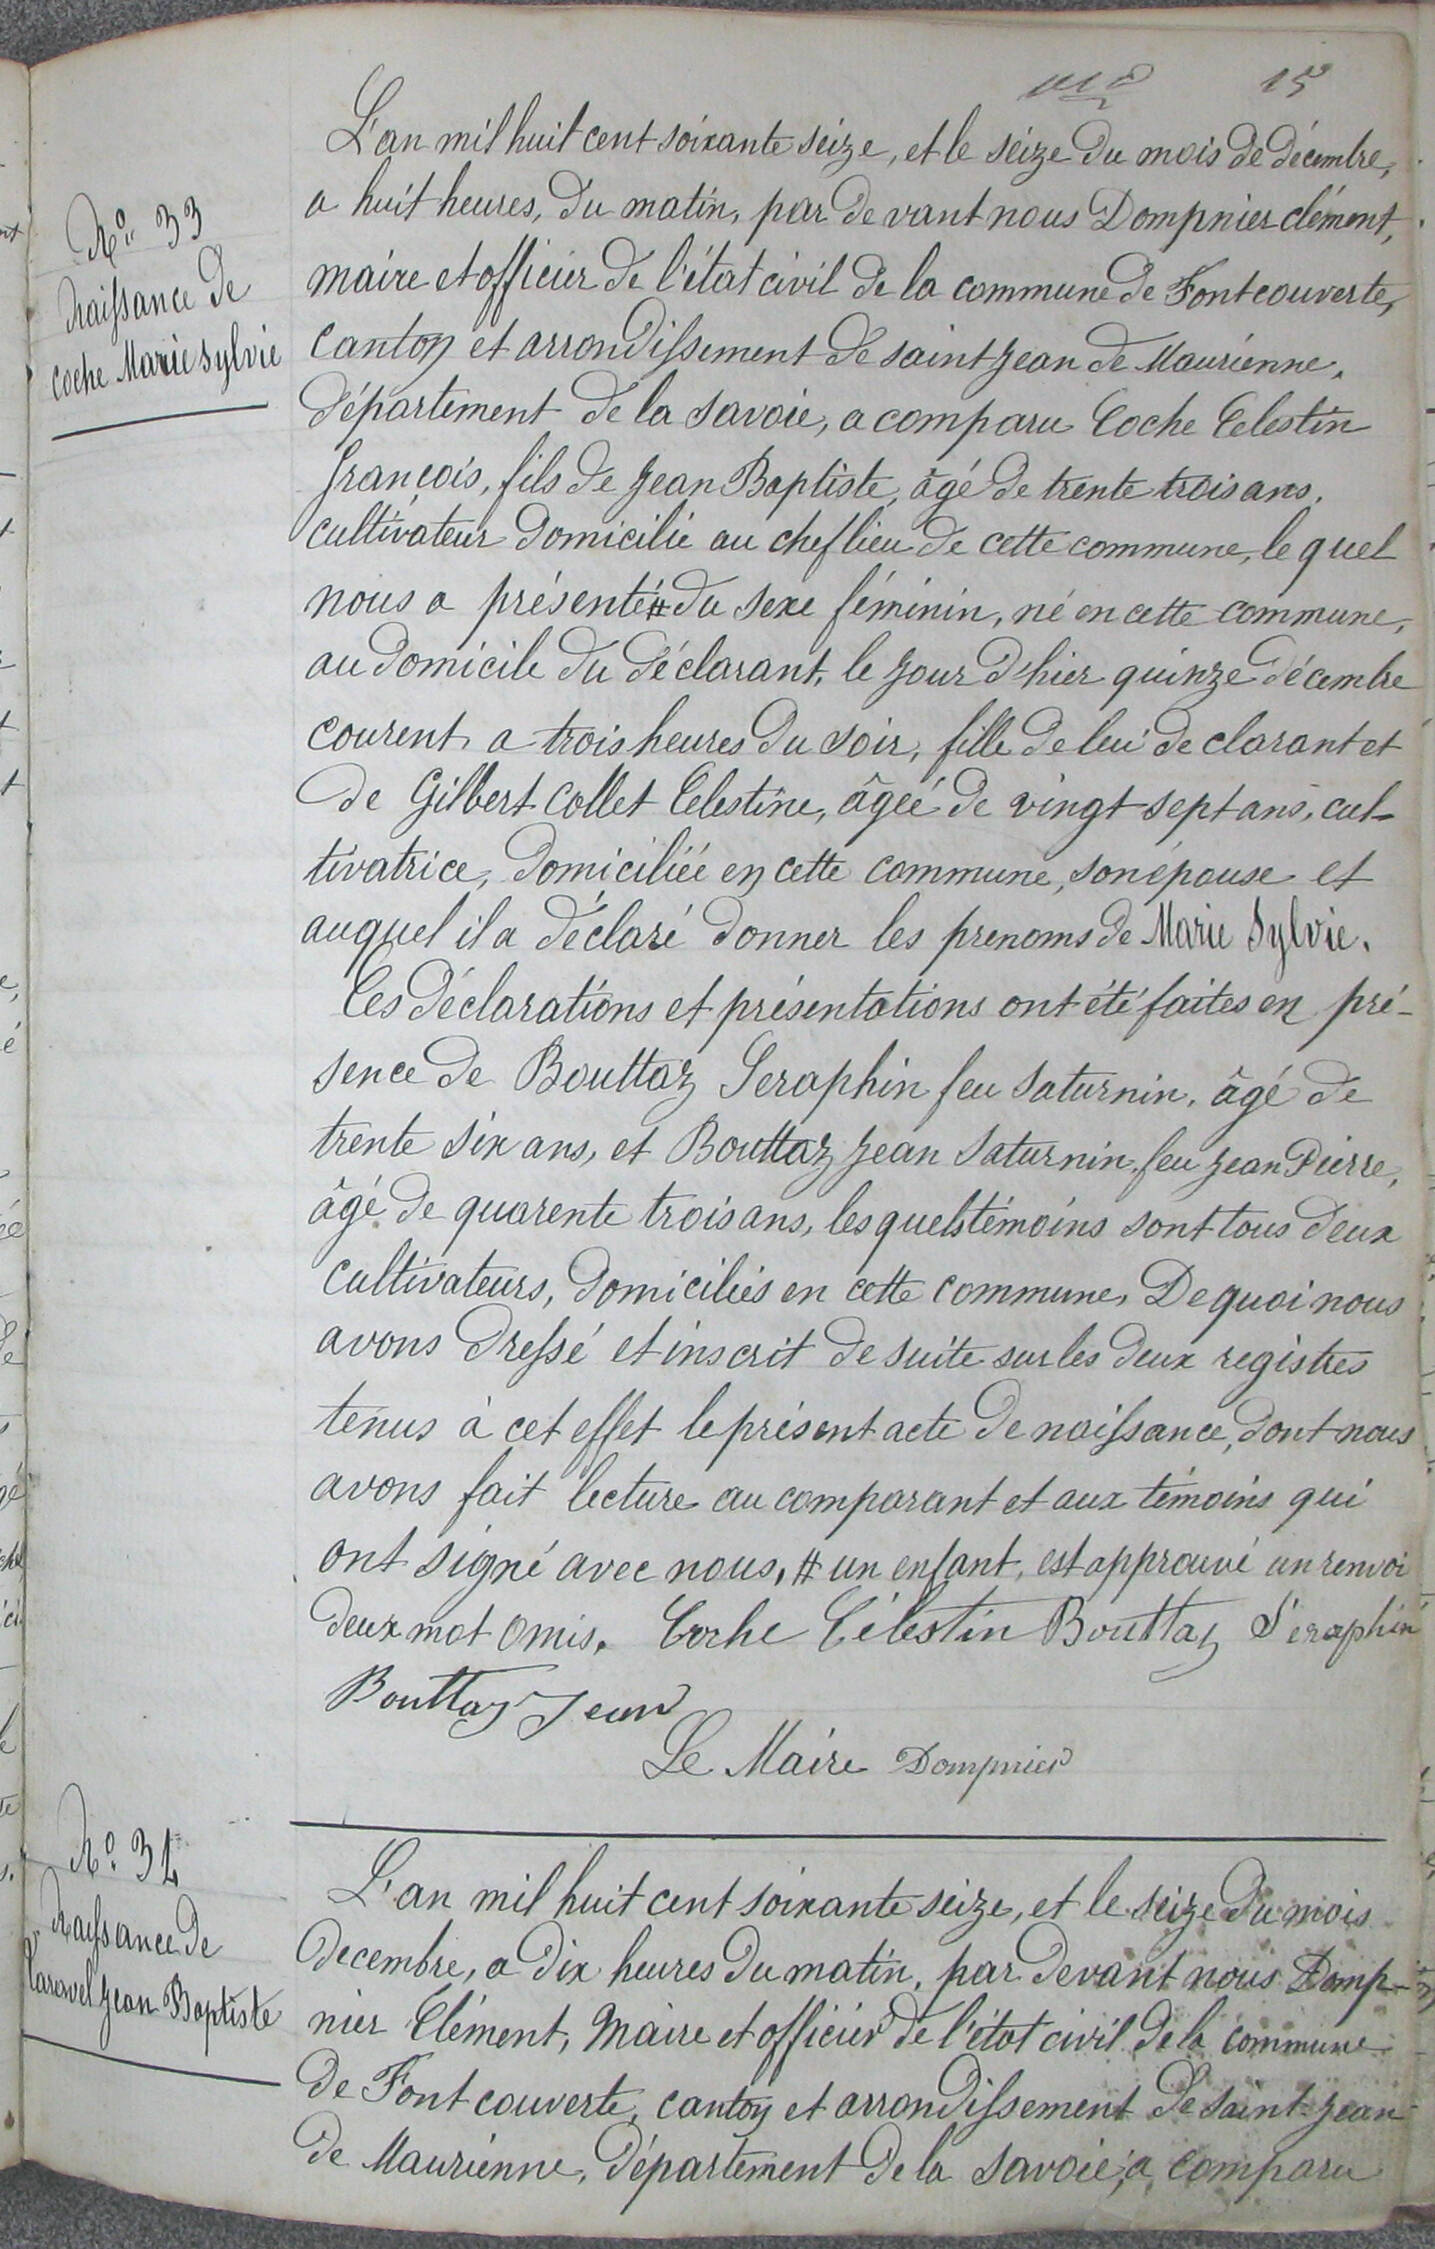 15
L'an mil huit cent soixante seize, et le seize du mois de décembre,
a huit heures, du matin, par devant nous Dompnier clément,
maire et officier de l'état civil de la commune de Fontcouverte,
canton et arrondissement de saint Jean de Maurienne,
département de la Savoie, a comparu Coche Celestin
françois, fils de Jean Baptiste, âgé de trente trois ans,
cultivateur domicilié au chef lieu de cette commune, le quel
nous a présenté # du sexe féminin, né en cette commune,
au domicile du déclarant, le jour d'hier quinze décembre
courent, a trois heures du soir, fille de lui declarant et
de Gilbert Collet Celestine, âgéé de vingt sept ans, cul-
tivatrice, domiciliéé en cette commune, son épouse et
auquel il a déclaré donner les prenoms de Marie Sylvie.
Ces déclarations et présentations ont été faites en pré-
sence de Bouttaz Seraphin feu Saturnin, âgé de
trente six ans, et Bouttaz Jean Saturnin, feu Jean Pierre,
âgé de quarente trois ans, les quels témoins sont tous deux
cultivateurs, domiciliés en cette commune, De quoi nous
avons dressé et inscrit de suite sur les deux registres
tenus à cet effet le présent acte de naissance, dont nous
avons fait lecture au comparant et aux témoins qui
ont signé avec nous, # un enfant, est approuvé un renvoi
deux mot omis. Coche Célestin Bouttaz Séraphin
Bouttaz Jean
Le Maire Dompnier
N° 33
Naissance de
Coche Marie Sylvie
N° 34
Naissance de
Jean Baptiste
L'an mil huit cent soixante seize, et le seize du mois
decembre, a dix heures du matin, par devant nous Domp-
nier Clément, Maire et officier de l'état civil de la commune
de Fontcouverte, canton et arrondissement de Saint Jean
de Maurienne, département de la Savoie, a comparu